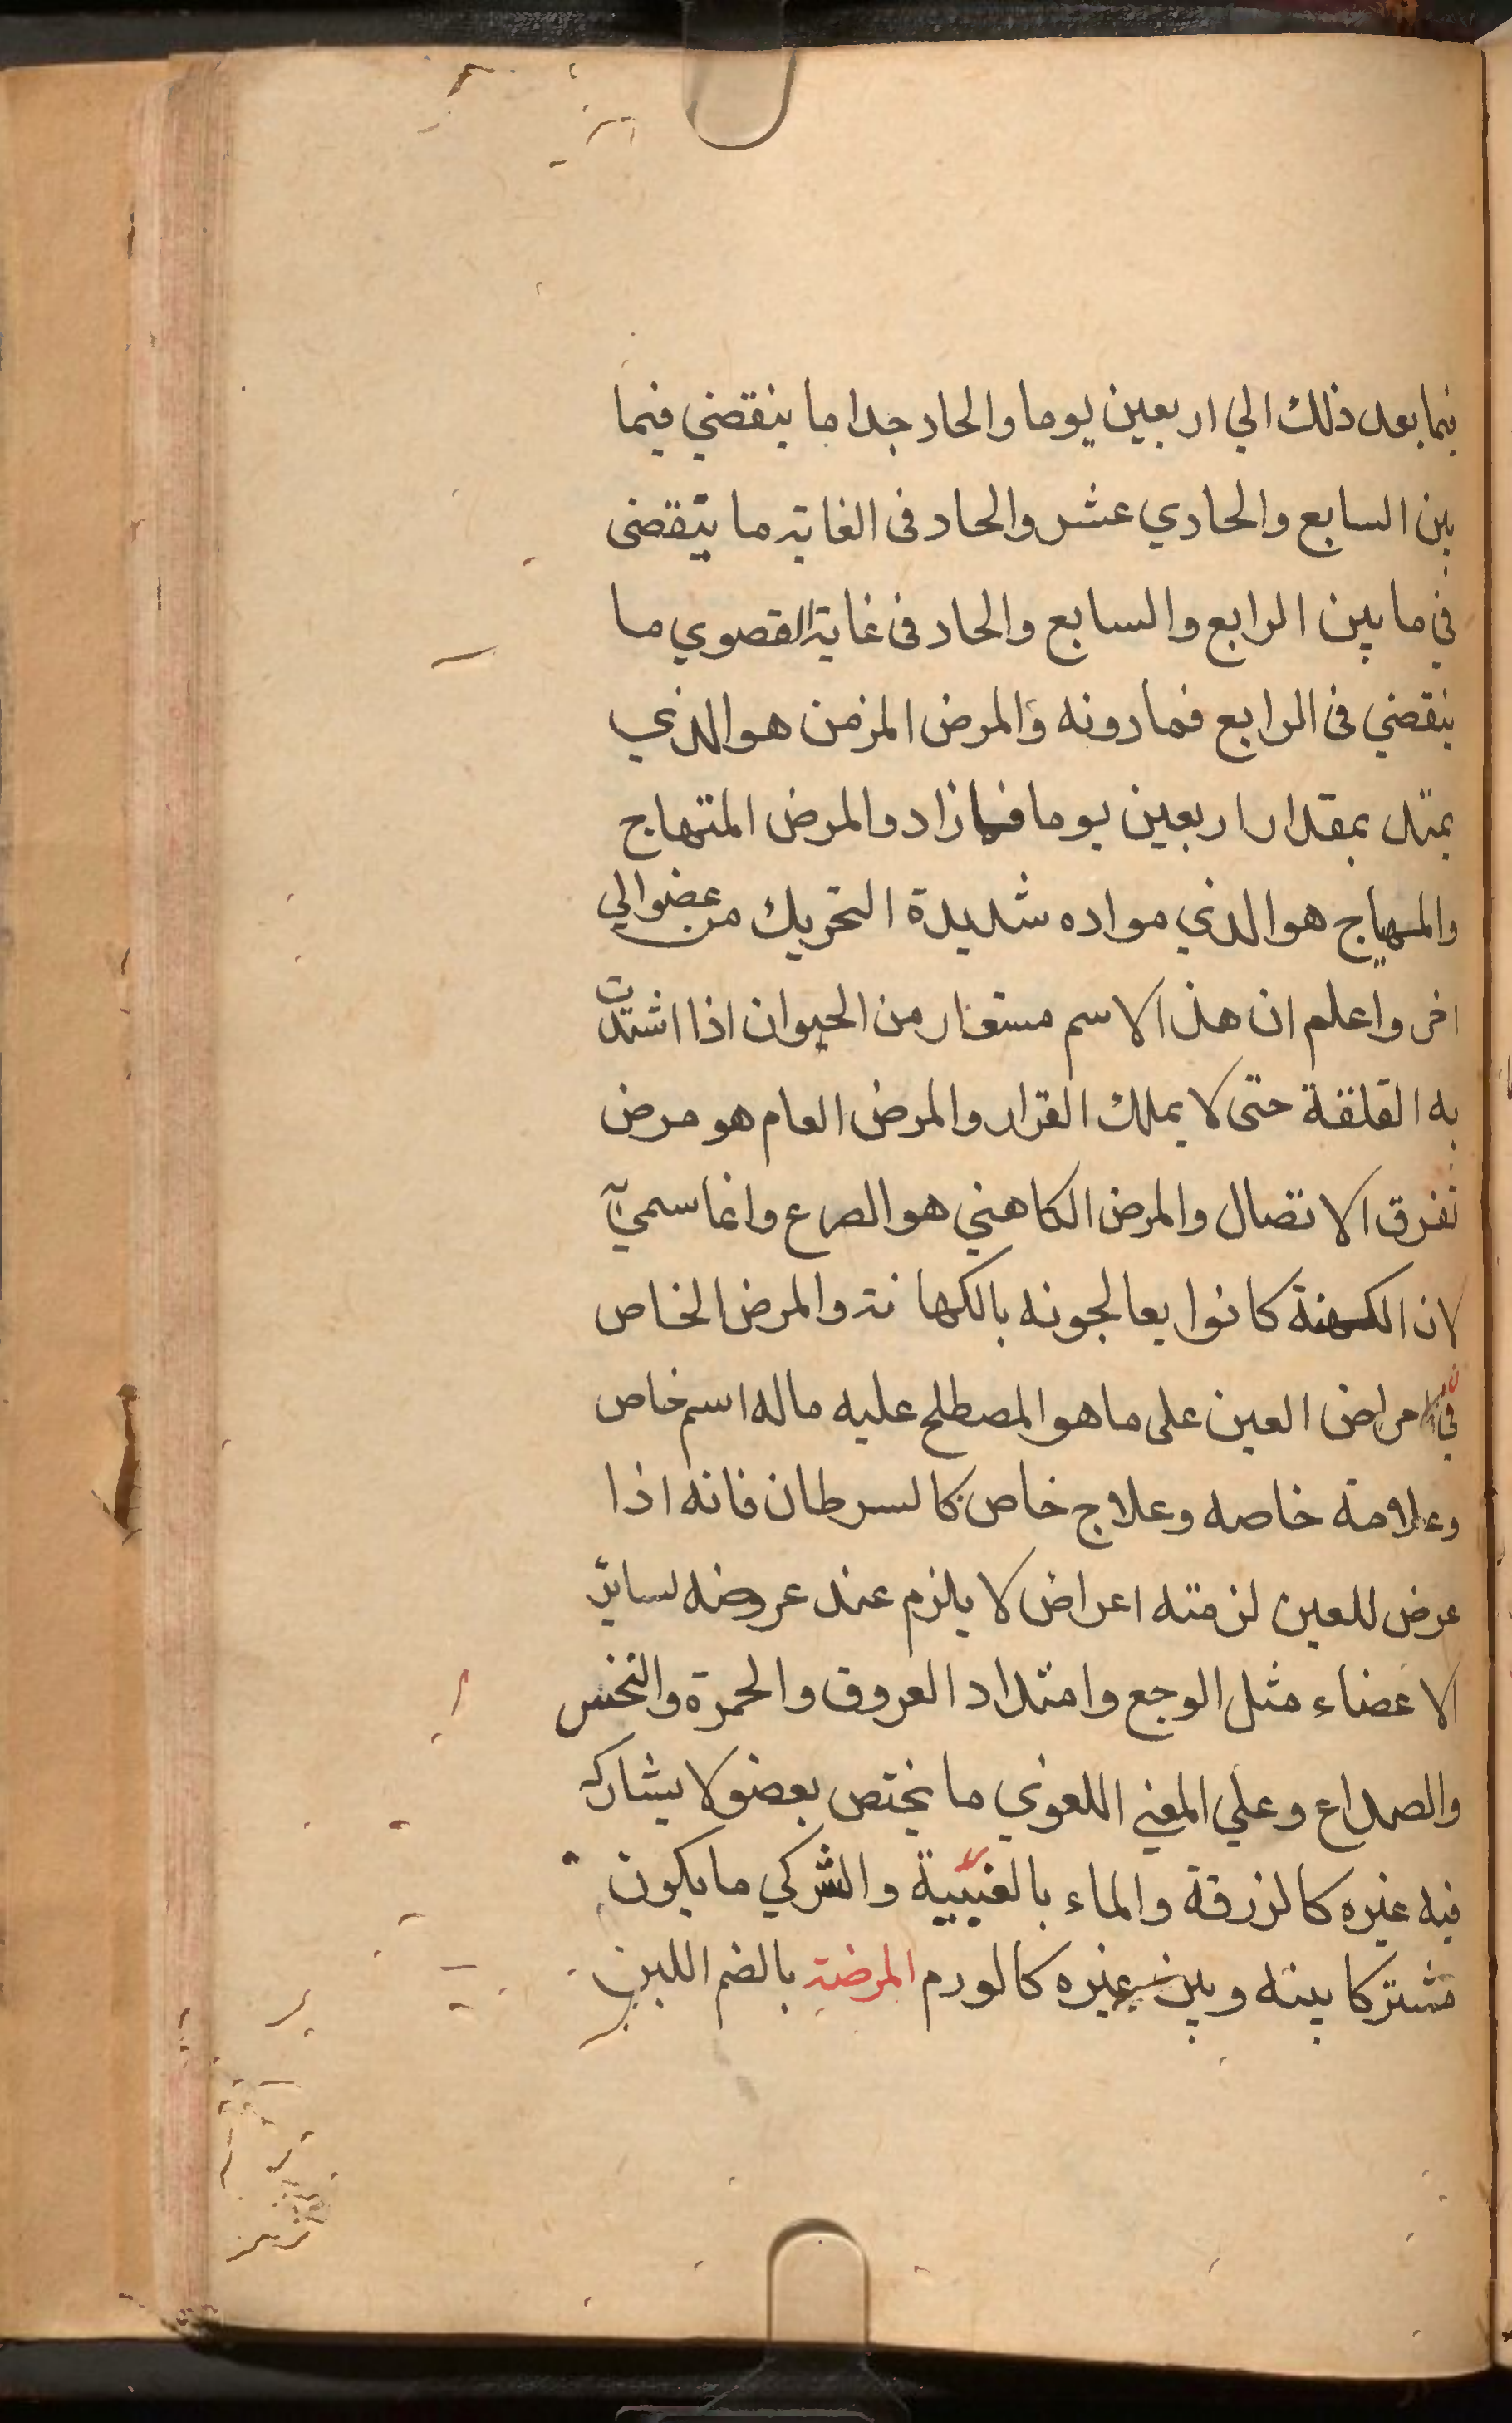 فيما بعد ذلك الي اربعين يوما والحاد جدا ما ينقضي فيما
بين السابع والحادي عشر والحاد فى الغاية ما ينقضى
في ما بين الرابع والسابع والحاد فى غاية القصوي ما
ينقضي فى الرابع فمادونه والمرض المزمن هو الذي
يمتد بمقدار اربعين يوما فما زاد والمرض المتهاج
والمهياج هو الذي مواده شديدة التحريك من عضو الي
اخر واعلم ان هذا الاسم مستعار من الحيوان اذا اشتدت
به القلقة حتى لا يملك القرار والمرض العام هو مرض
تفرق الاتصال والمرض الكاهني هو الصرع وانما سمي به
لان الكهنة كانوا يعالجونه بالكهانة والمرض الخاص
في امراض العين على ما هو المصطلح عليه ماله اسم خاص
وعلامة خاصه وعلاج خاص كالسرطان فانه اذا
عرض للعين لزمته اعراض لا يلزم عند عروضه لساير
الاعضاء مثل الوجع وامتداد العروق والحمرة والنخس
والصداع وعلي المعني اللغوي ما يختص بعضو لا يشاركه
فيه غيره كالزرقة والماء بالعنبية والشركي ما يكون
مشتركا بينه وبين غيره كالورم المرضة بالضم اللبن